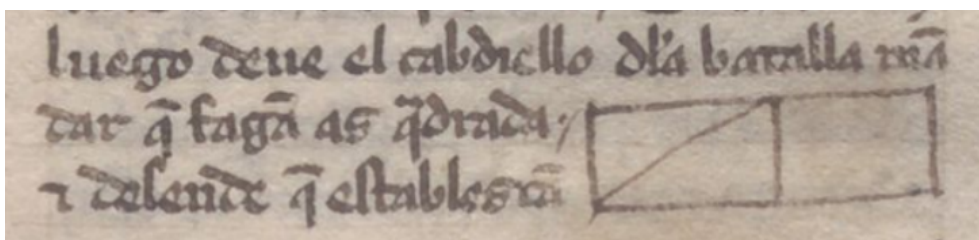 luego deue el cabdiello dl'a batalla mā
dar q̄ fagā as q̄drada·/
⁊ delende q̄ establesçā